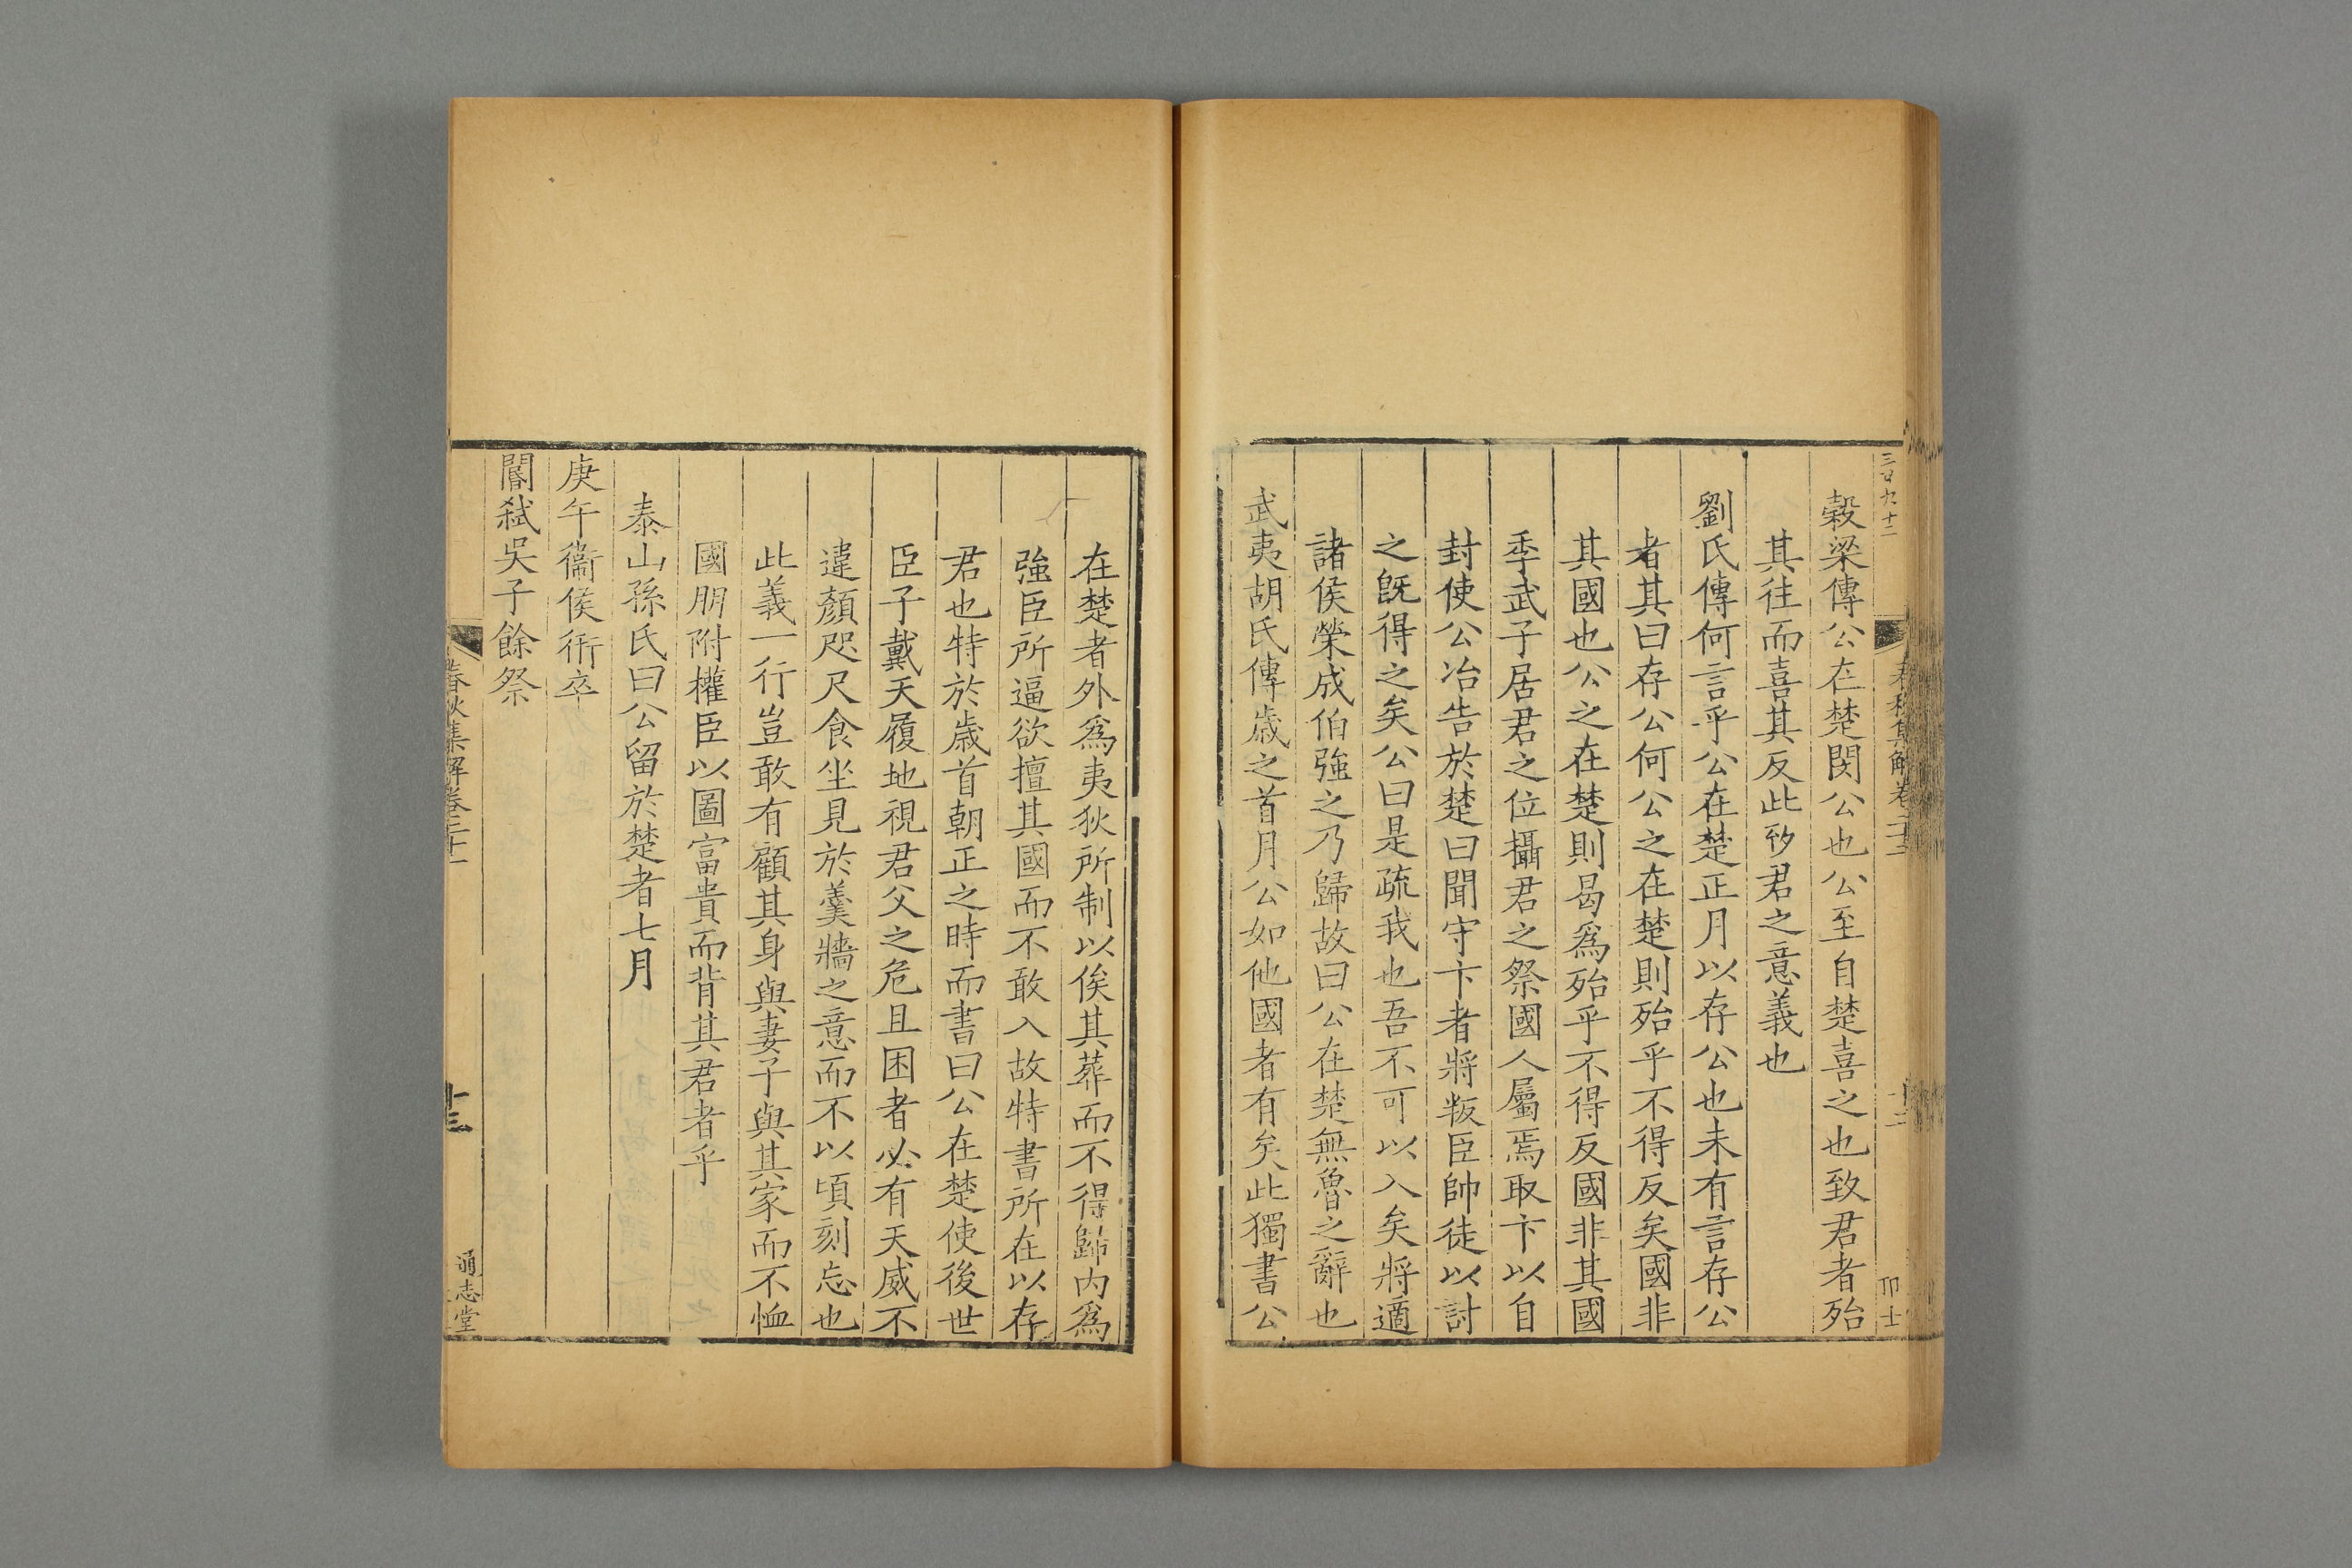 穀梁傳公在楚閔公也公至自楚喜之也致君者殆
其往而喜其反此致君之意義也
劉氏傳何言乎公在楚正月以存公也未有言存公
者其曰存公何公之在楚則殆乎不得反矣國非
其國也公之在楚則曷爲殆乎不得反國非其國
季武子居君之位攝君之祭國人屬焉取卞以自
封使公冶告於楚曰聞守卞者將叛臣帥徒以討
之旣得之矣公曰是疏我也吾不可以入矣將適
諸侯榮成伯強之乃歸故曰公在楚無魯之辭也
武夷胡氏傳歲之首月公如他國者有矣此獨書公
在楚者外爲夷狄所制以俟其葬而不得歸内爲
強臣所逼欲擅其國而不敢入故特書所在以存
君也特於歲首朝正之時而書曰公在楚使後世
臣子戴天履地視君父之危且困者必有天威不
違顏咫尺食坐見於羹牆之意而不以頃刻忘也
此義一行豈敢有顧其身與妻子與其家而不恤
國朋附權臣以圖富貴而背其君者乎
泰山孫氏曰公留於楚者七月
庚午衞侯衎卒
閽弑吳子餘祭
春秋集解卷二十一
十三
通志堂